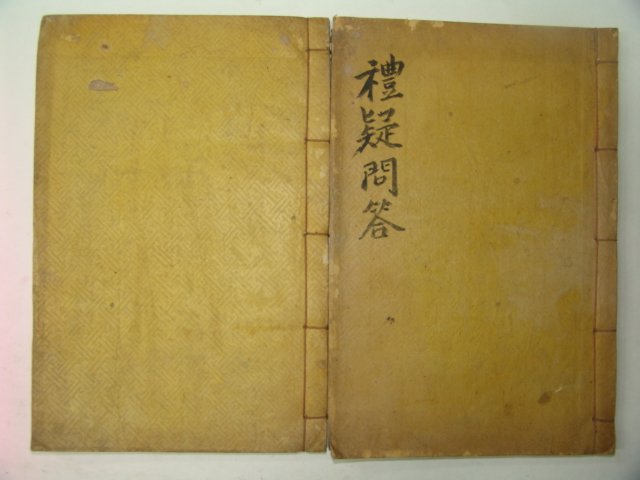 禮疑問答